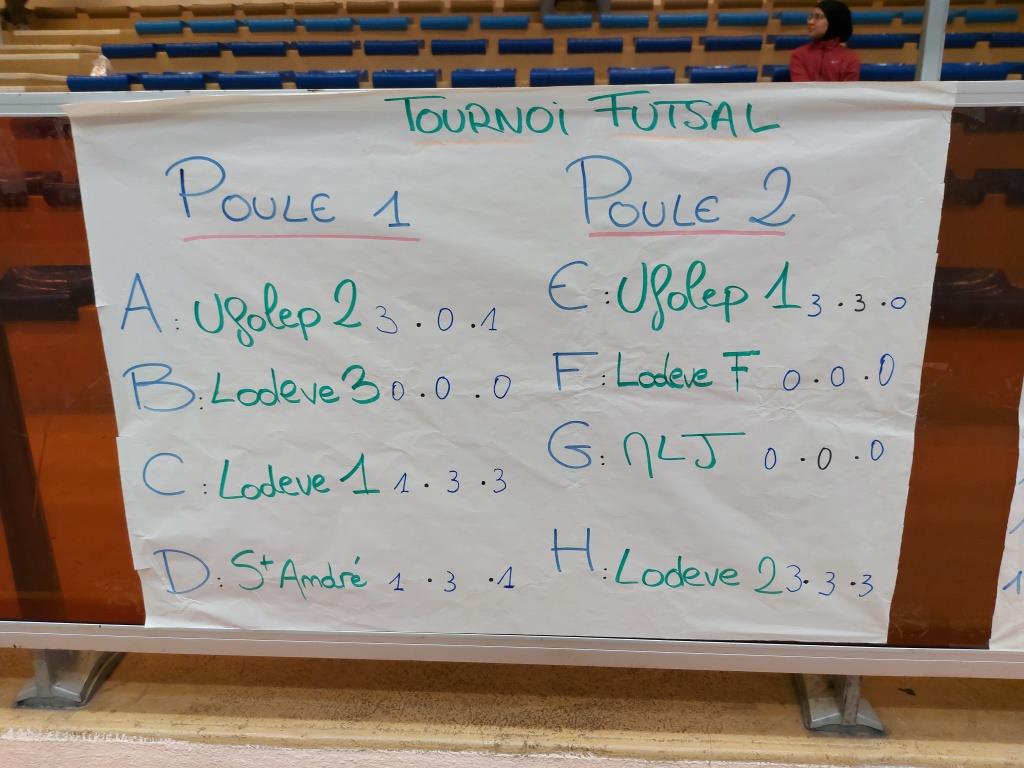 TOURNOi FUTSAL
POULE 1
A : Ufolep 2 3 . 0 . 1
B : Lodeve 3 0 . 0 . 0
C : Lodeve 1 1 . 3 . 3
D : St André 1 . 3 . 1
POULE 2
E : Ufolep 1 3 . 3 . 0
F : Lodeve F 0 . 0 . 0
G : MLJ 0 . 0 . 0
H : Lodeve 2 3 . 3 . 3